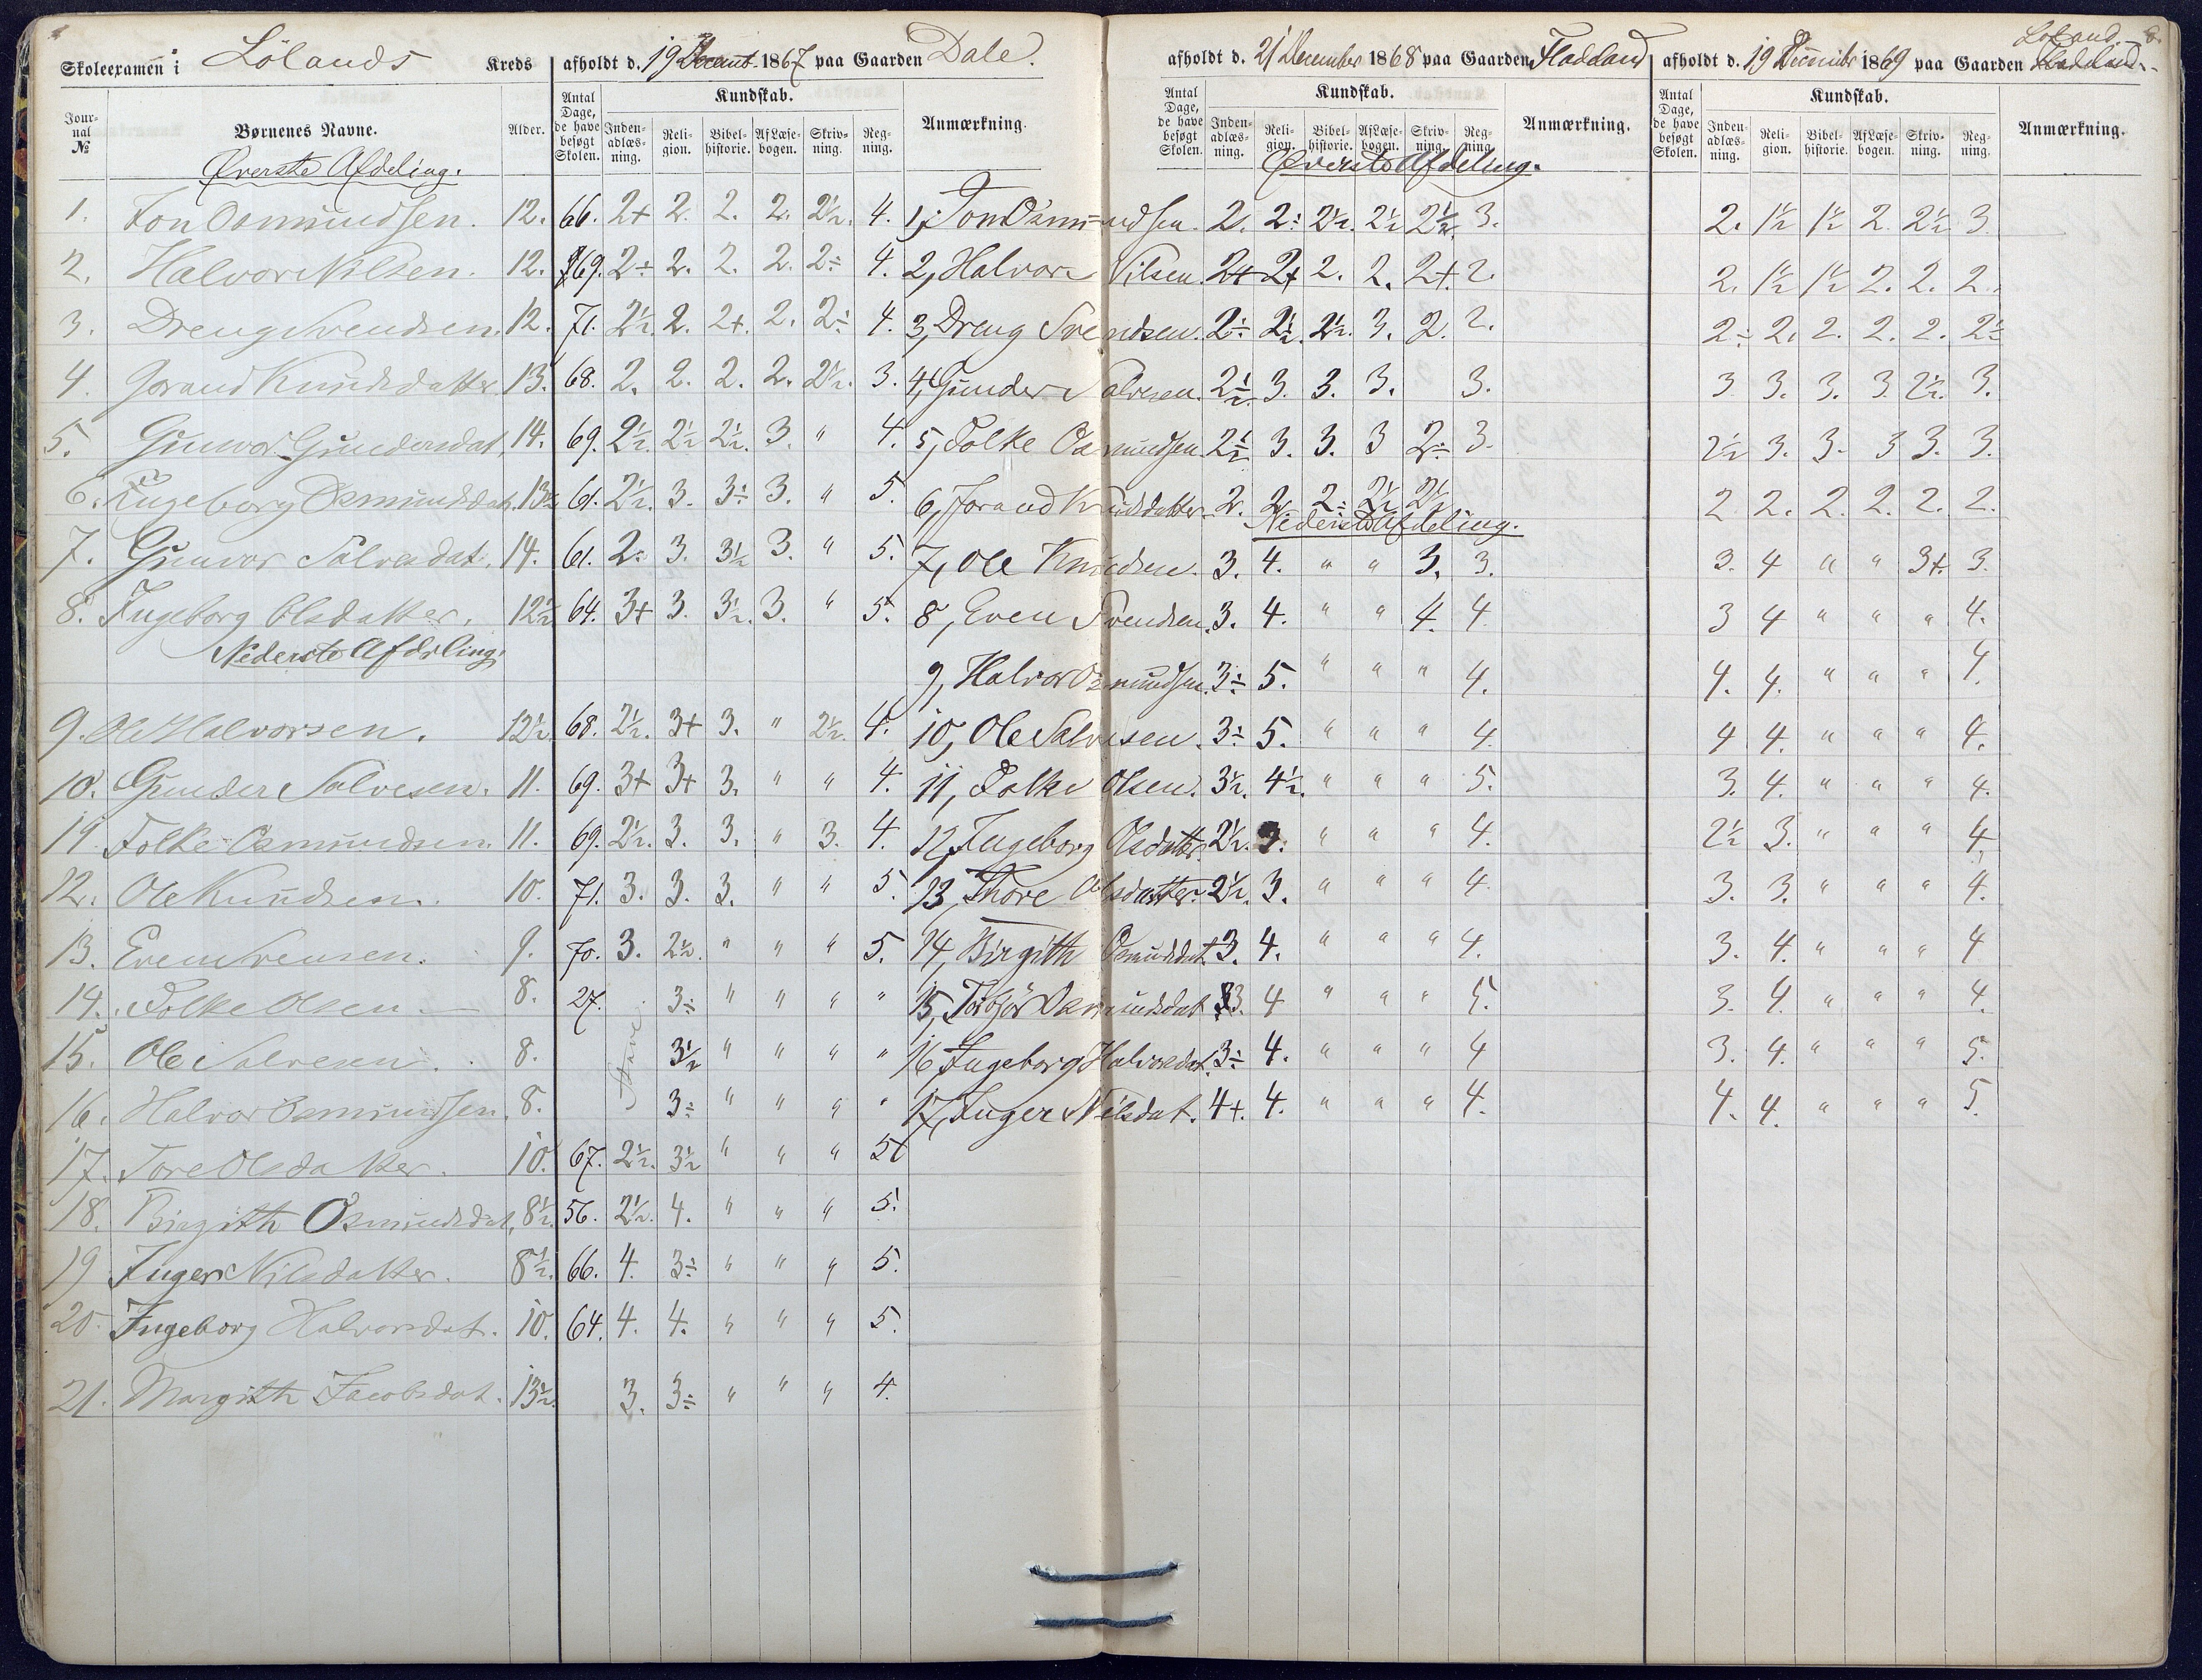 Skoleexamen i Lölands Kreds afholdt d. 19 Decemb 1867 paa Gaarden Dale. afholdt d. 21 December 1868 paa Gaarden Fladeland afholdt d. 19 December 1869 paa Gaarden Löland
Jour-nal № Børnenes Navne. Alder. Antal Dage, de have besøgt Skolen. Kundskab. Inden-adlæs-ning. Reli-gion. Bibel-historie. Af Læse-bogen. Skriv-ning. Reg-ning. Anmærkning. Antal Dage, de have besøgt Skolen. Kundskab. Inden-adlæs-ning. Reli-gion. Bibel-historie. Af Læse-bogen. Skriv-ning. Reg-ning. Anmærkning. Antal Dage, de have besøgt Skolen. Kundskab. Inden-adlæs-ning. Reli-gion. Bibel-historie. Af Læse-bogen. Skriv-ning. Reg-ning. Anmærkning.
Øverste Afdeling. Øverste Afdeling.
1. Jon Osmundsen. 12. 66. 2+ 2. 2. 2. 2½. 4. 1, Jon Osmundsen. 2. 2÷ 2½. 2½ 2½. 3. 2. 1½ 1½ 2. 2½ 3.
2. Halvor Nilsen. 12. 69. 2÷ 2. 2. 2. 2÷ 4. 2, Halvor Nilsen. 2+ 2+ 2. 2. 2+. 2. 2. 1½ 1½ 2. 2. 2.
3. Dreng Svendsen. 12. 71. 2½. 2. 2+. 2. 2÷ 4. 3, Dreng Svendsen. 2÷ 2½. 2½. 3. 2. 2. 2÷ 2. 2. 2. 2. 2½
4. Jorand Knudsdatter. 13. 68. 2. 2. 2. 2. 2½. 3. 4, Gunder Salvesen. 2½. 3. 3. 3. 3. 3 3. 3. 3. 2½. 3.
5. Gunvor Gundersdat. 14. 69. 2½. 2½ 2½. 3. " 4. 5, Folke Osmundsen. 2½ 3. 3. 3 2÷ 3. 2½ 3. 3. 3 3. 3.
6. Ingeborg Osmundsdat. 13½ 61. 2½. 3. 3÷ 3. " 5. 6, Jorand Knudsdatter. 2. 2. 2÷ 2½ 2½ 2 2. 2. 2. 2. 2.
Nederste Afdeling.
7. Gunvor Salvesdat. 14. 61. 2÷ 3. 3½ 3. " 5. 7, Ole Knudsen. 3. 4. " " 3. 3. 3. 4 " " 3+. 3.
8. Ingeborg Olsdatter. 12½ 64. 3+ 3. 3½. 3. " 5. 8, Even Svendsen. 3. 4. " " 4. 4. 3 4 " " " 4.
Nederste Afdeling.
9, Halvor Osmundsen. 3÷ 5. " " " 4. 4. 4. " " " 4.
9. Ole Halvorsen. 12½. 68. 2½. 3+ 3. " 2½. 4. 10, Ole Salvesen. 3÷ 5. " " " 4. 4 4. " " " 4.
10. Gunder Salvesen. 11. 69. 3+ 3+ 3. " " 4. 11, Folke Olsen. 3½. 4½. " " " 5. 3. 4. " " " 4.
11. Folke Osmundsen. 11. 69. 2½. 3. 3. " 3. 4. 12, Ingeborg Olsdatter. 2½. 3. " " " 4. 2½ 3. " " " 4
12. Ole Knudsen. 10. 71. 3. 3. 3. " " 5. 13, Thore Olsdatter. 2½. 3. " " " 4. 3. 3. " " " 4.
13. Even Svensen. 9. 70. 3. 2½. " " " 5. 14, Birgith Osmundsdat. 3. 4. " " " 4. 3. 4. " " " 4
14. Folke Olsen. 8. 27. 3÷ " " " " 15, Osmundsdat 3. 4 " " " 5. 3. 4. " " " 4.
15. Ole Salvesen. 8. Stave 3½ " " " " 16, Ingeborg Halvorsdat. 3÷ 4. " " " 4 3. 4. " " " 5.
16. Halvor Osmundsen. 8. 3÷ " " " " 17, Inger Nilsdat. 4+. 4. " " " 4. 4. 4. " " " 5.
17. Tore Olsdatter. 10. 67. 2½. 3½ " " " 5
18. Birgith Osmundsdat. 8½. 56. 2½. 4. " " " 5.
19. Inger Nilsdatter. 8½. 66. 4. 3÷ " " " 5.
20. Ingeborg Halvorsdat. 10. 64. 4. 4. " " " 5.
21. Margith Jacobsdat. 13½. 3. 3÷ " " " 4.